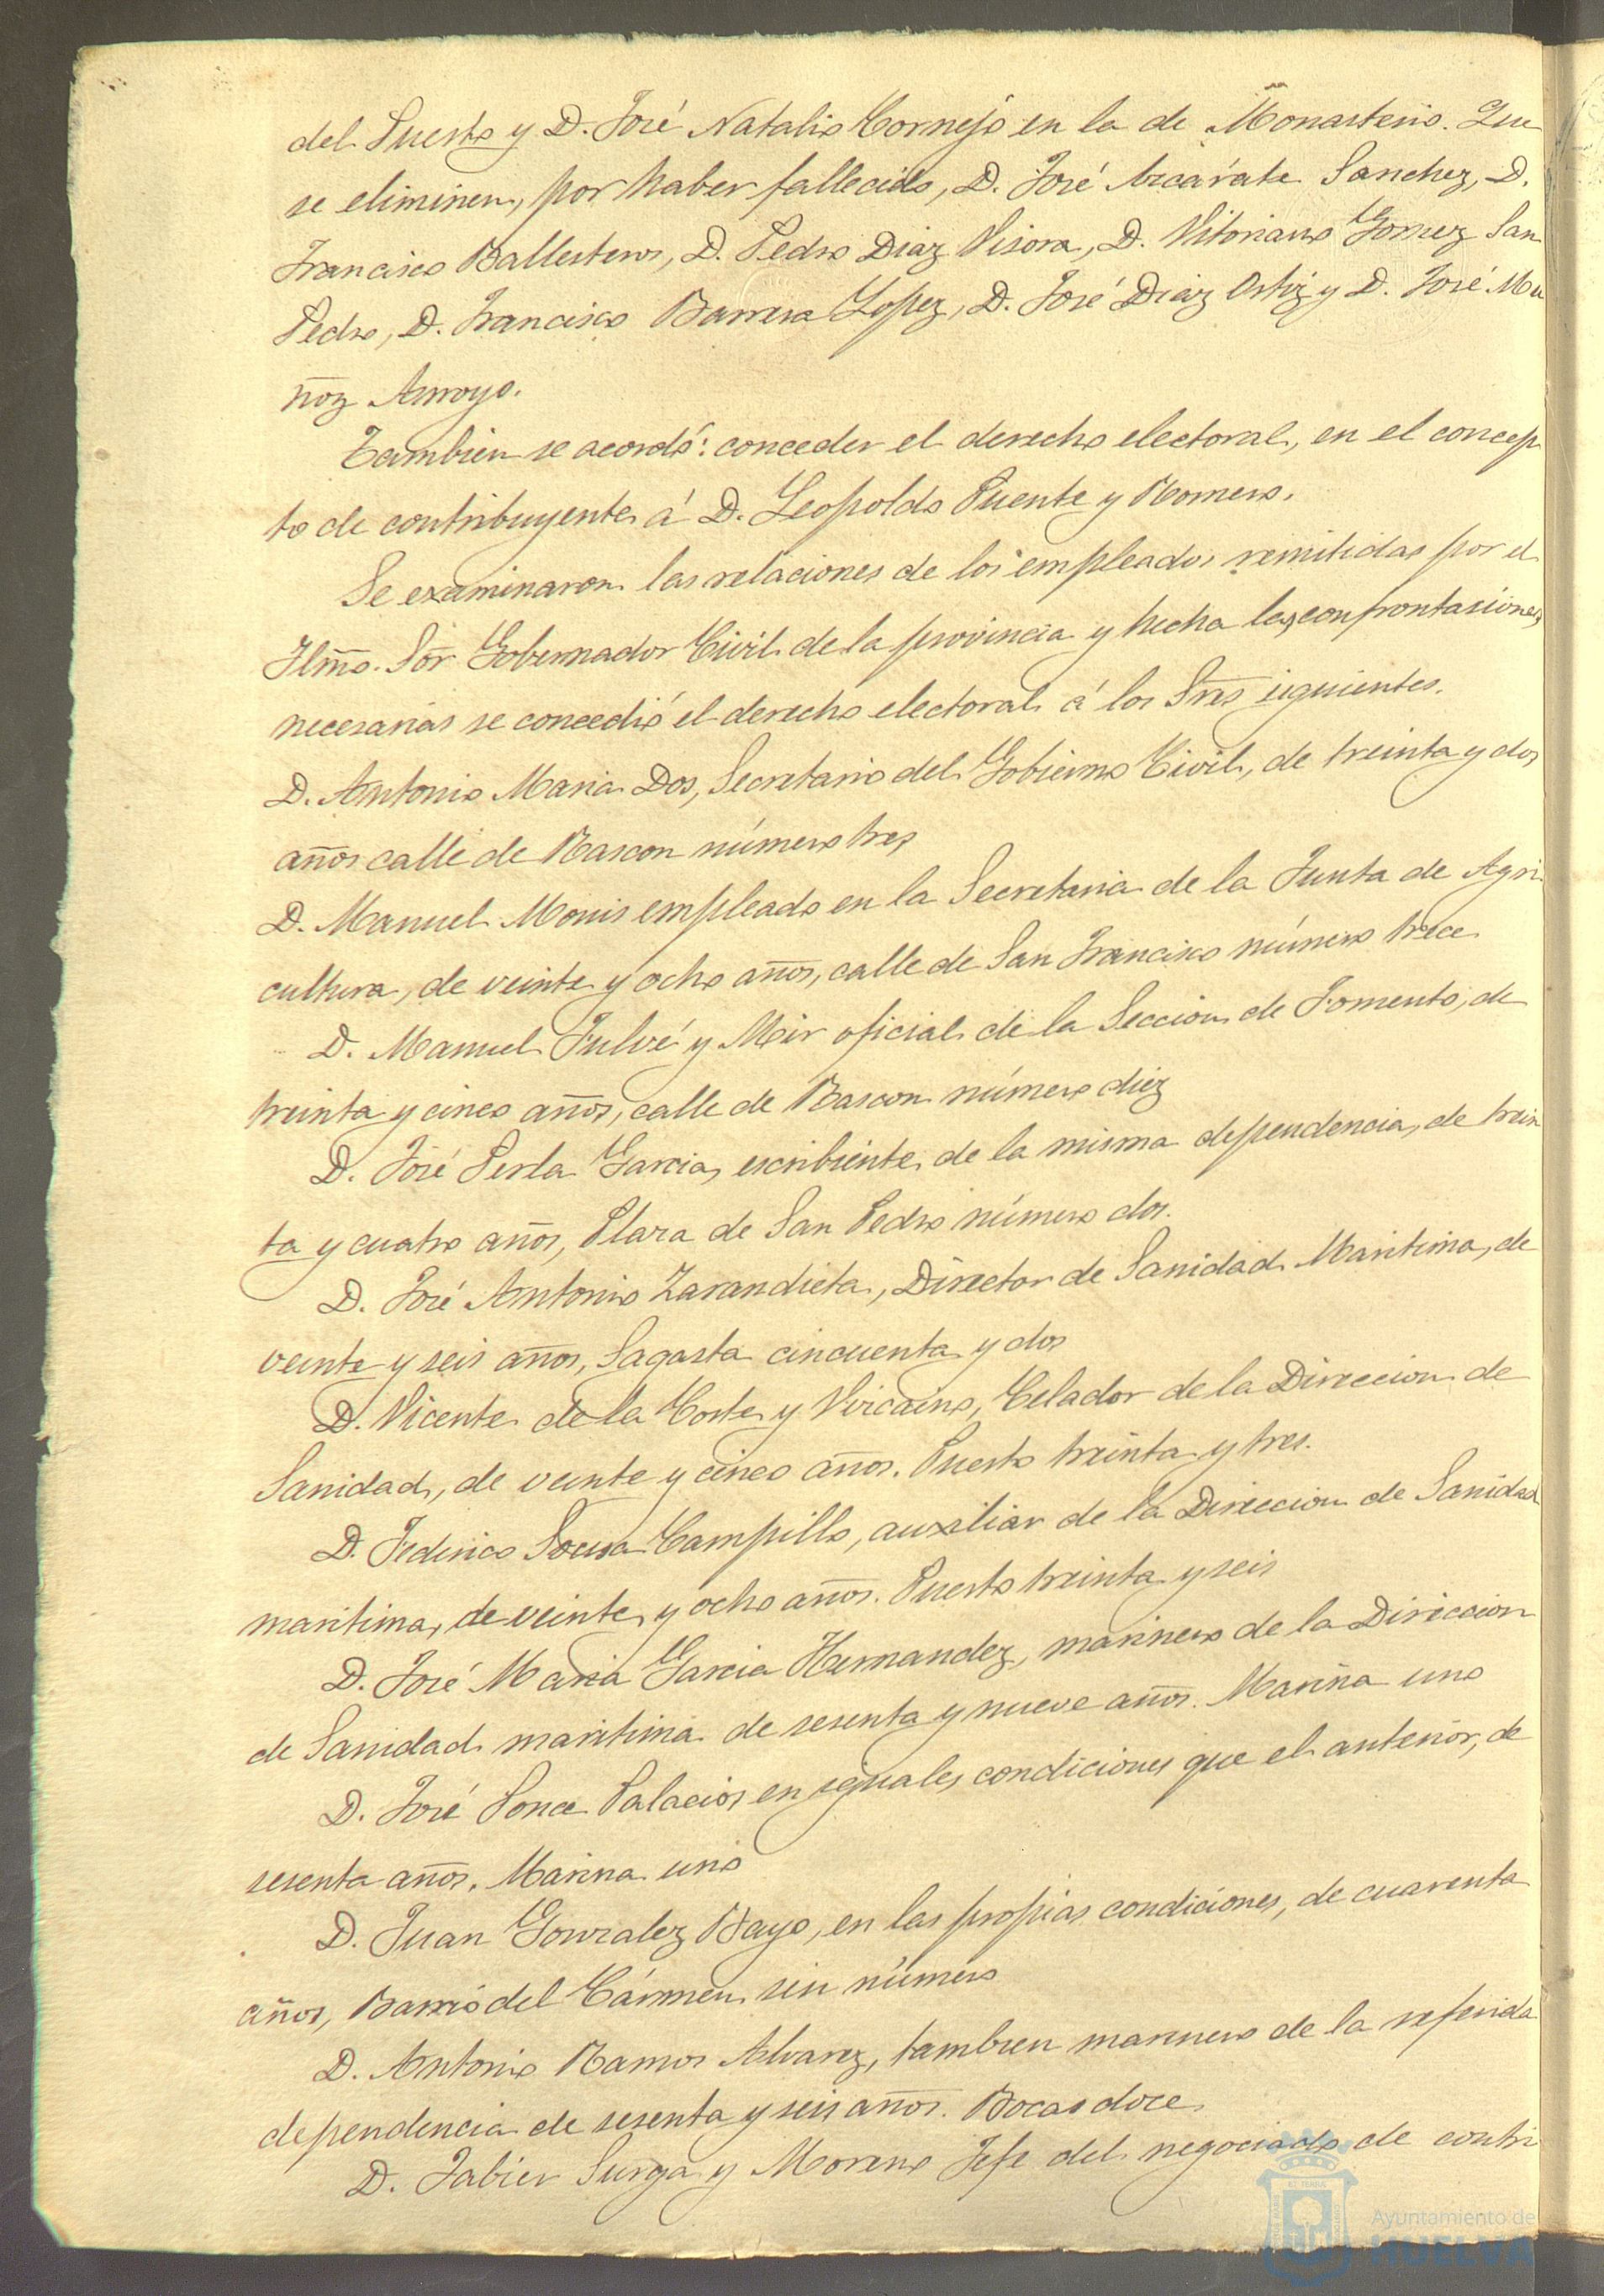 del Puerto y D. José Natalio Cornejo en la de Monasterio. Que
se eliminen, por haber fallecido, D. José Azcárate Sanchez, D.
Francisco Ballesteros, D. Pedro Diaz Visora, D. Vitoriano Gomez San
Pedro, D. Francisco Barrera Lopez, D. José Diaz Ortiz y D. José Mu
ñoz Arroyo.
Tambien se acordó: conceder el derecho electoral, en el concep
to de contribuyente á D. Leopoldo Puente y Romero.
Se examinaron las relaciones de los empleados remitidas por el
Ilmo. Sor Gobernador Civil de la provincia y hecha las confrontasiones
necesarias se concedió el derecho electoral á los Sres siguientes.
D. Antonio Maria Dos, Secretario del Gobierno Civil, de treinta y dos
años calle de Rascon número tres
D. Manuel Monis empleado en la Secretaria de la Junta de Agri
cultura, de veinte y ocho años, calle de San Francisco número trece
D. Manuel Fulvé y Mir oficial de la Seccion de Fomento, de
treinta y cinco años, calle de Rascon número diez
D. José Perla Garcia, escribiente de la misma dependencia, de trein
ta y cuatro años, Plaza de San Pedro número dos.
D. José Antonio Zarandieta, Director de Sanidad Maritima, de
veinte y seis años, Sagasta cincuenta y dos
D. Vicente de la Corte y Vizcaino, Celador de la Direccion de
Sanidad, de veinte y cinco años. Puerto treinta y tres.
D. Federico Campillo, auxiliar de la Direccion de Sanidad
maritima, de veinte y ocho años. Puerto treinta y seis
D. José Maria Garcia Hernandez, marinero de la Direccion
de Sanidad maritima de sesenta y nueve años. Marina uno
D. José Ponce Palacios en iguales condiciones que el anterior, de
sesenta años, Marina uno
D. Juan Gonzalez Bayo, en las propias condiciones, de cuarenta
años, Barrio del Cármen sin número
D. Antonio Ramos Alvarez, tambien marinero de la referida
dependencia de sesenta y seis años. Bocas doce
D. Jabier Surga y Moreno Jefe del negociado de contri
Ayuntamiento de
HUELVA